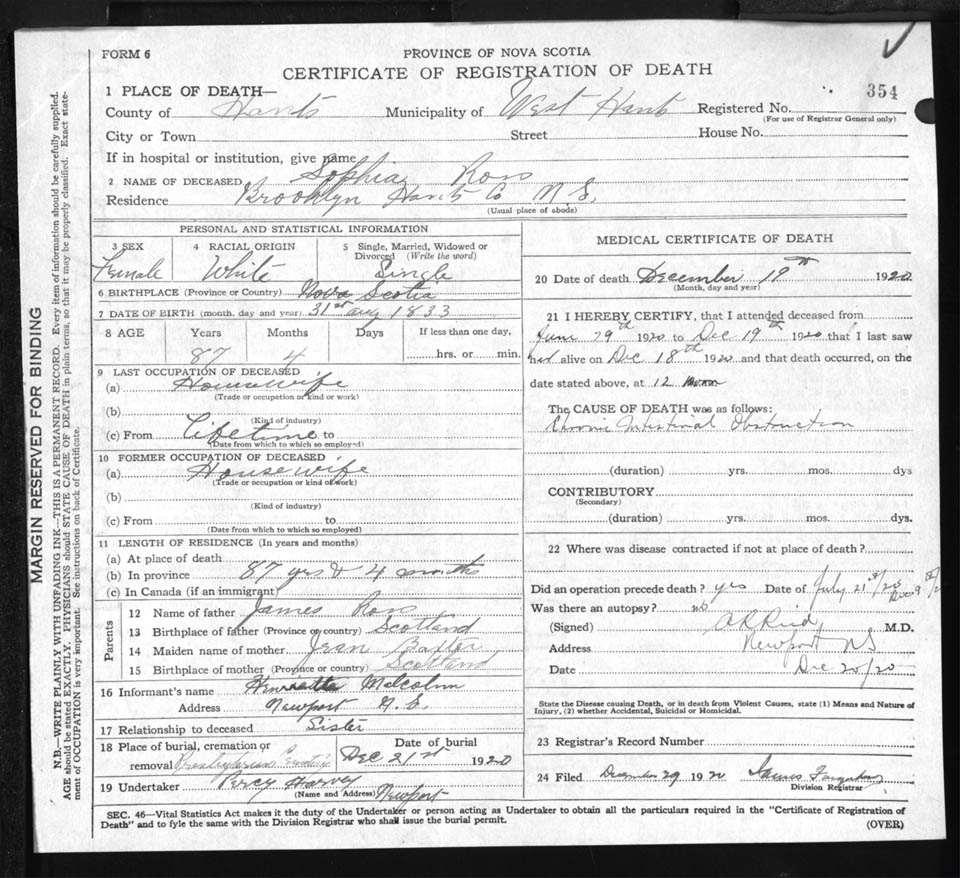 FORM 6
PROVINCE OF NOVA SCOTIA
CERTIFICATE OF REGISTRATION OF DEATH
354
1 PLACE OF DEATH—
County of Hants Municipality of West Hants Registered No.
(For use of Registrar General only)
City or Town Street House No.
If in hospital or institution, give name
2 NAME OF DECEASED Sophia Ross
Residence Brooklyn Hants Co N.S.
(Usual place of abode)
MARGIN RESERVED FOR BINDING
N.B.—WRITE PLAINLY WITH UNFADING INK—THIS IS A PERMANENT RECORD. Every item of information should be carefully supplied.
AGE should be stated EXACTLY. PHYSICIANS should STATE CAUSE OF DEATH in plain terms, so that it may be properly classified. Exact state-
ment of OCCUPATION is very important. See instructions on back of Certificate.
PERSONAL AND STATISTICAL INFORMATION
3 SEX
Female
4 RACIAL ORIGIN
White
5 Single, Married, Widowed or
Divorced (Write the word)
Single
6 BIRTHPLACE (Province or Country) Nova Scotia
7 DATE OF BIRTH (month, day and year) 31st Aug 1833
8 AGE Years Months Days If less than one day,
87 4 hrs. or min.
9 LAST OCCUPATION OF DECEASED
(a) Housewife
(Trade or occupation or kind or work)
(b)
(Kind of industry)
(c) From Lifetime to
(Date from which to which so employed)
10 FORMER OCCUPATION OF DECEASED
(a) Housewife
(Trade or occupation or kind of work)
(b)
(Kind of industry)
(c) From to
(Date from which to which so employed)
11 LENGTH OF RESIDENCE (In years and months)
(a) At place of death
(b) In province 87 yrs & 4 months
(c) In Canada (if an immigrant)
Parents
12 Name of father James Ross
13 Birthplace of father (Province or country) Scotland
14 Maiden name of mother Jean Baxter
15 Birthplace of mother (Province or country) Scotland
16 Informant's name Henrietta Malcolm
Address Newport N.S.
17 Relationship to deceased Sister
18 Place of burial, cremation or Date of burial
removal Presbyterian Dec 21st 1920
19 Undertaker Percy Harvey
(Name and Address) Newport
MEDICAL CERTIFICATE OF DEATH
20 Date of death December 19th 1920
(Month, day and year)
21 I HEREBY CERTIFY, that I attended deceased from
June 29th 1920 to Dec 19th 1920 that I last saw
her alive on Dec 18th 1920 and that death occurred, on the
date stated above, at 12
The CAUSE OF DEATH was as follows:
Chronic Intestinal Obstruction
(duration) yrs. mos. dys
CONTRIBUTORY
(Secondary)
(duration) yrs. mos. dys.
22 Where was disease contracted if not at place of death?
Did an operation precede death? yes Date of July 21st/20
Was there an autopsy? no
(Signed) A R Reid M.D.
Address Newport NS
Date Dec 20/20
State the Disease causing Death, or in death from Violent Causes, state (1) Means and Nature of
Injury, (2) whether Accidental, Suicidal or Homicidal.
23 Registrar's Record Number
24 Filed December 29 1920 James
Division Registrar
SEC. 46—Vital Statistics Act makes it the duty of the Undertaker or person acting as Undertaker to obtain all the particulars required in the "Certificate of Registration of
Death" and to fyle the same with the Division Registrar who shall issue the burial permit.
(OVER)